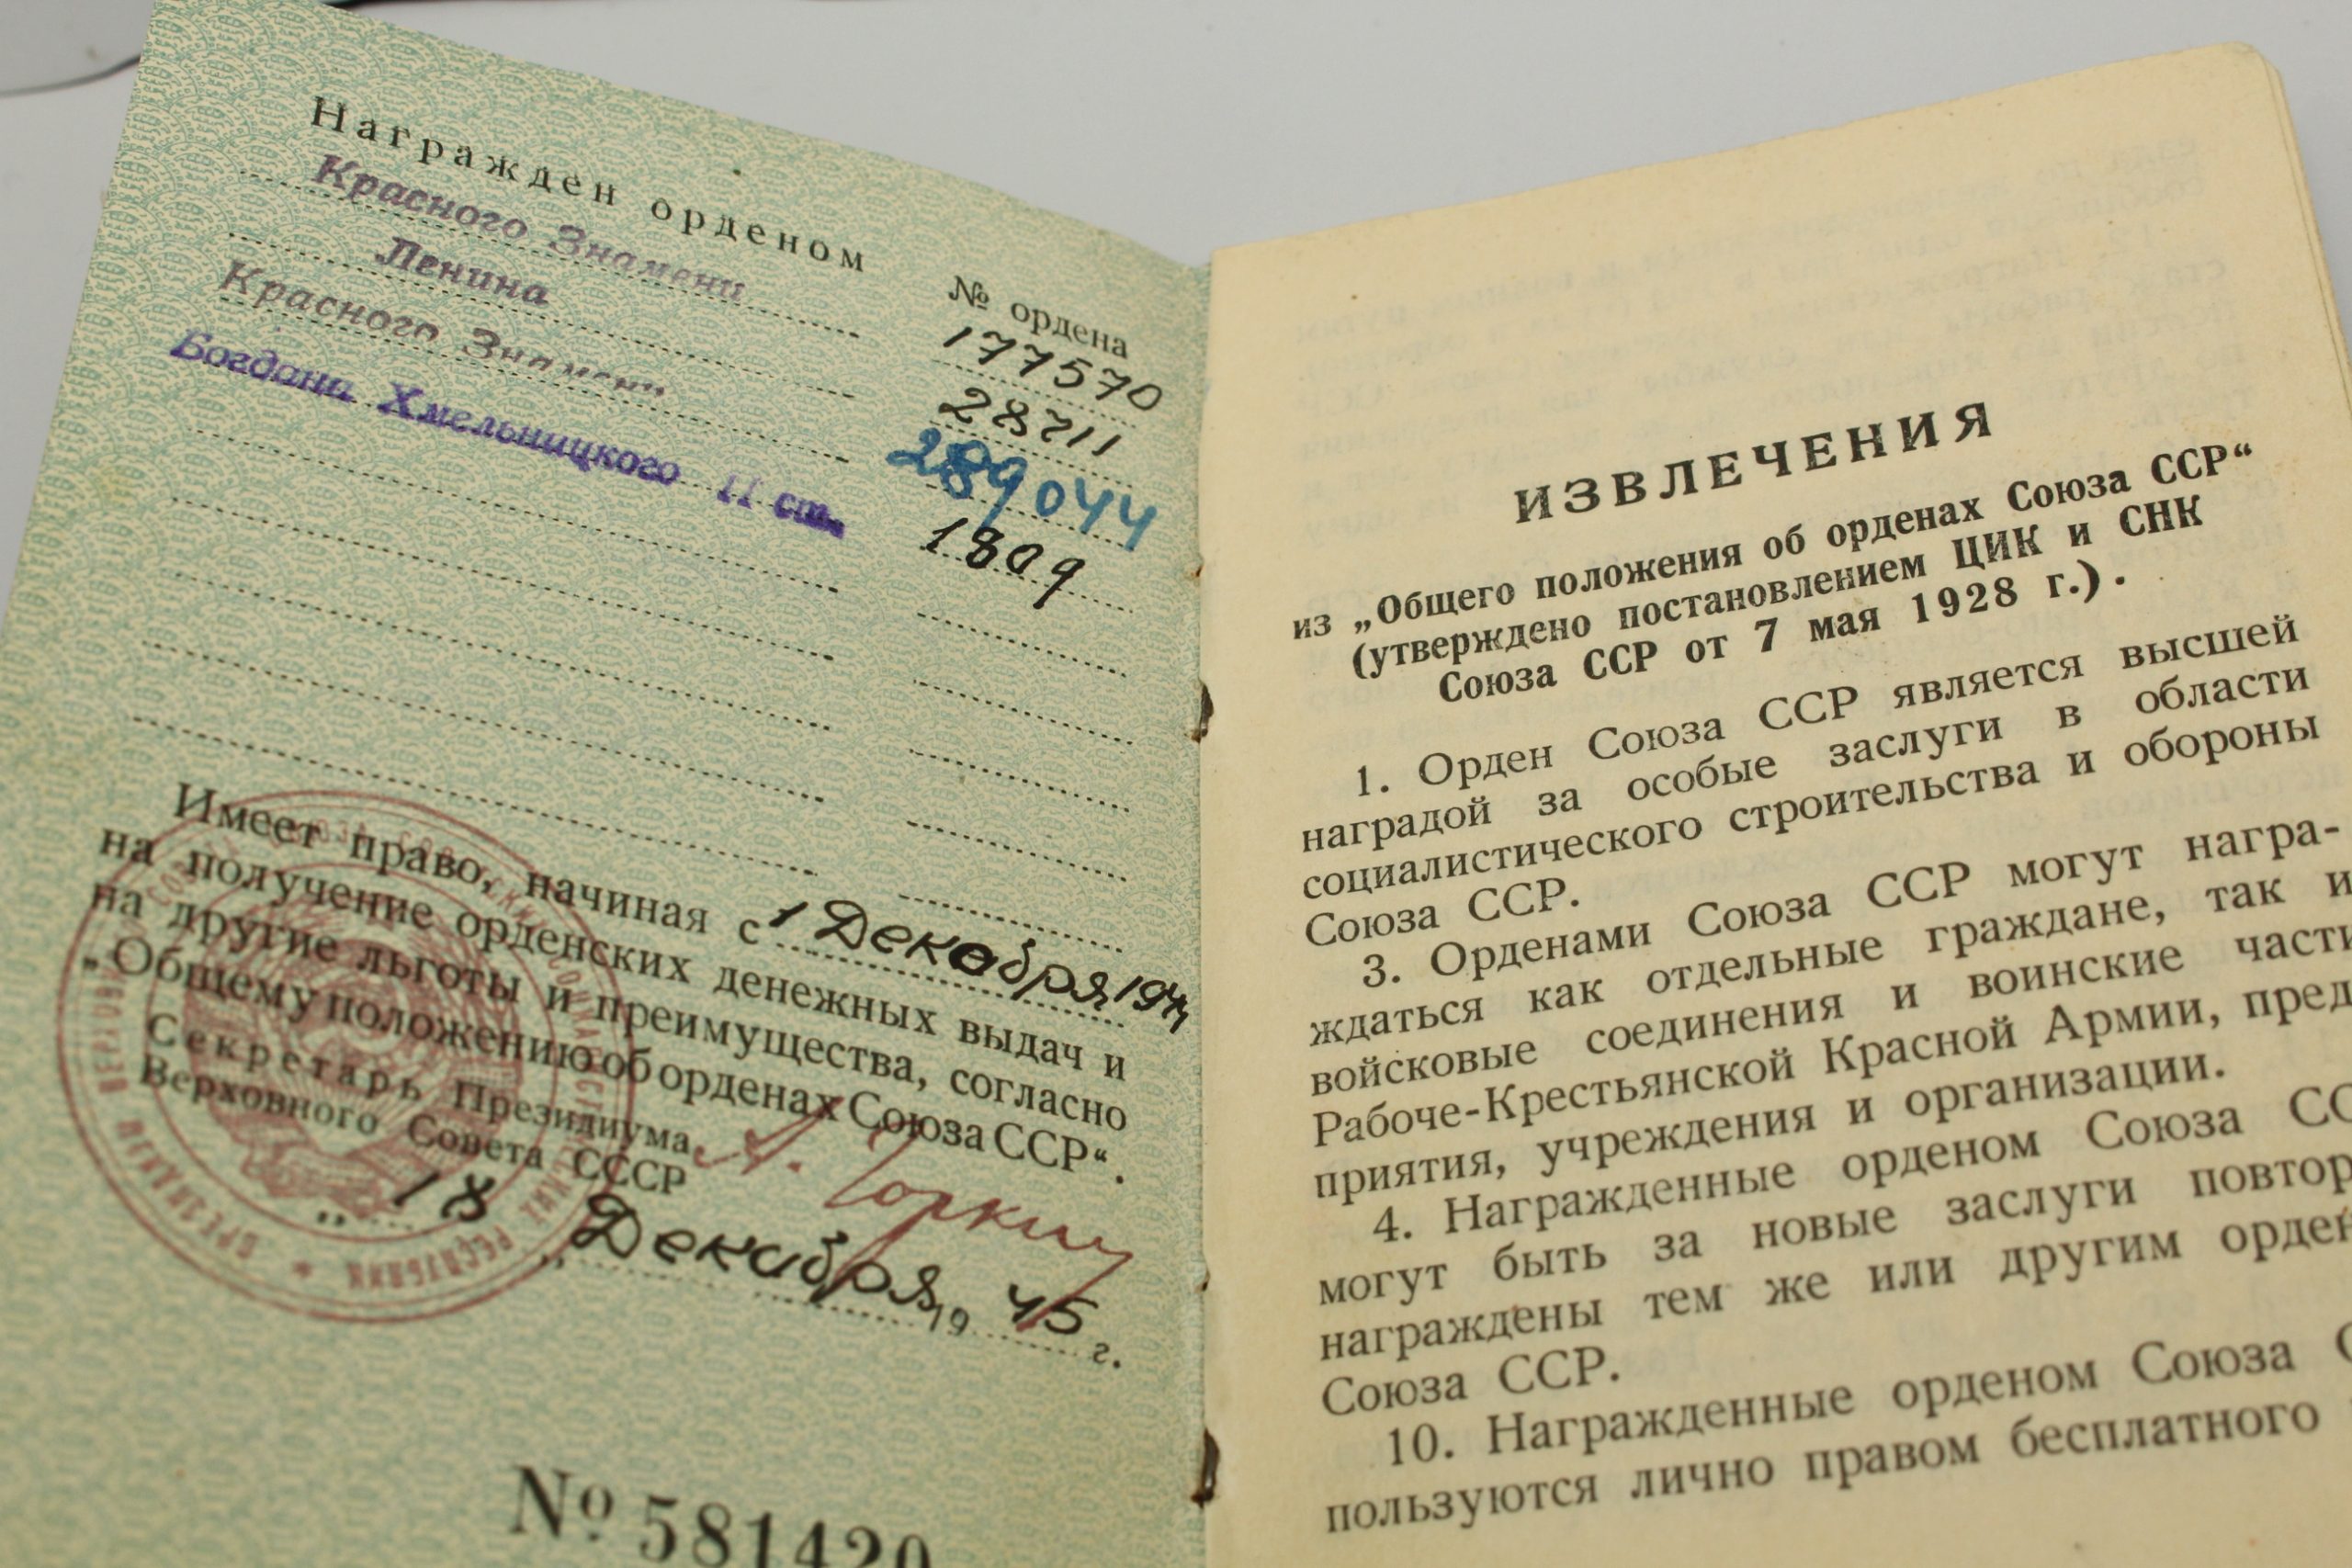 Награжден орденом
№ ордена
Красного Знамени 177570
Ленина 28711
Красного Знамени 289044
Богдана Хмельницкого II ст. 1809
Имеет право, начиная с 1 Декабря 194
на получение орденских денежных выдач и
на другие льготы и преимущества, согласно
„Общему положению об орденах Союза ССР“.
Секретарь Президиума
Верховного Совета СССР А. Горкин
„18„ Декабря 19 45 г.
№ 581420
ИЗВЛЕЧЕНИЯ
из „Общего положения об орденах Союза ССР“
(утверждено постановлением ЦИК и СНК
Союза ССР от 7 мая 1928 г.).
1. Орден Союза ССР является высшей
наградой за особые заслуги в области
социалистического строительства и обороны
Союза ССР.
3. Орденами Союза ССР могут награ-
ждаться как отдельные граждане, так и
войсковые соединения и воинские части
Рабоче-Крестьянской Красной Армии, пред
приятия, учреждения и организации.
4. Награжденные орденом Союза СС
могут быть за новые заслуги повтор
награждены тем же или другим орден
Союза ССР.
10. Награжденные орденом Союза С
пользуются лично правом бесплатного